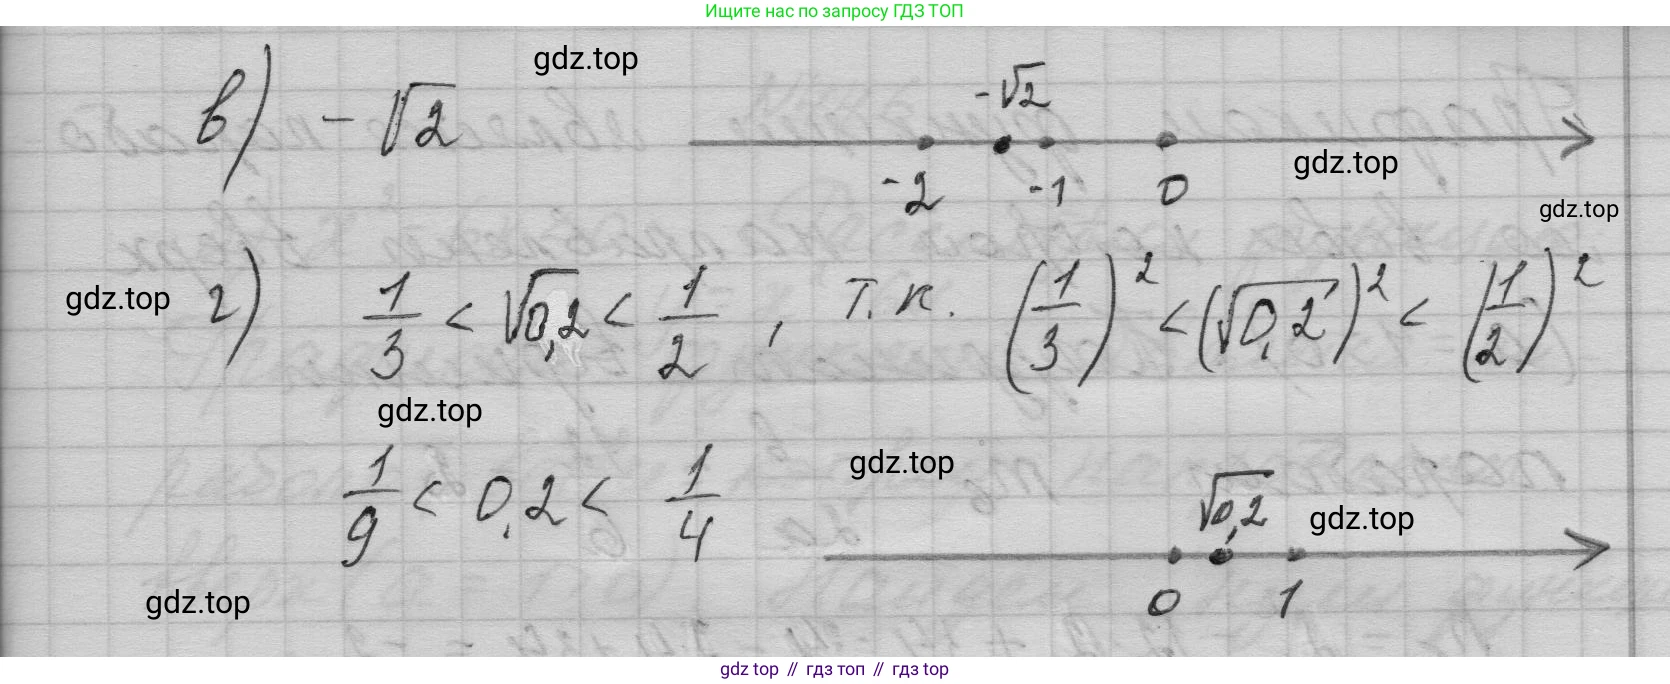 Ищите нас по запросу ГДЗ ТОП
gdz.top
в) -√2
-√2
-2 -1 0
gdz.top
gdz.top
gdz.top
г) 1/3 < √0,2 < 1/2 , т.к. (1/3)² < (√0,2)² < (1/2)²
gdz.top
1/9 < 0,2 < 1/4
gdz.top
√0,2
gdz.top
0 1
gdz.top
gdz top // гдз топ // гдз top